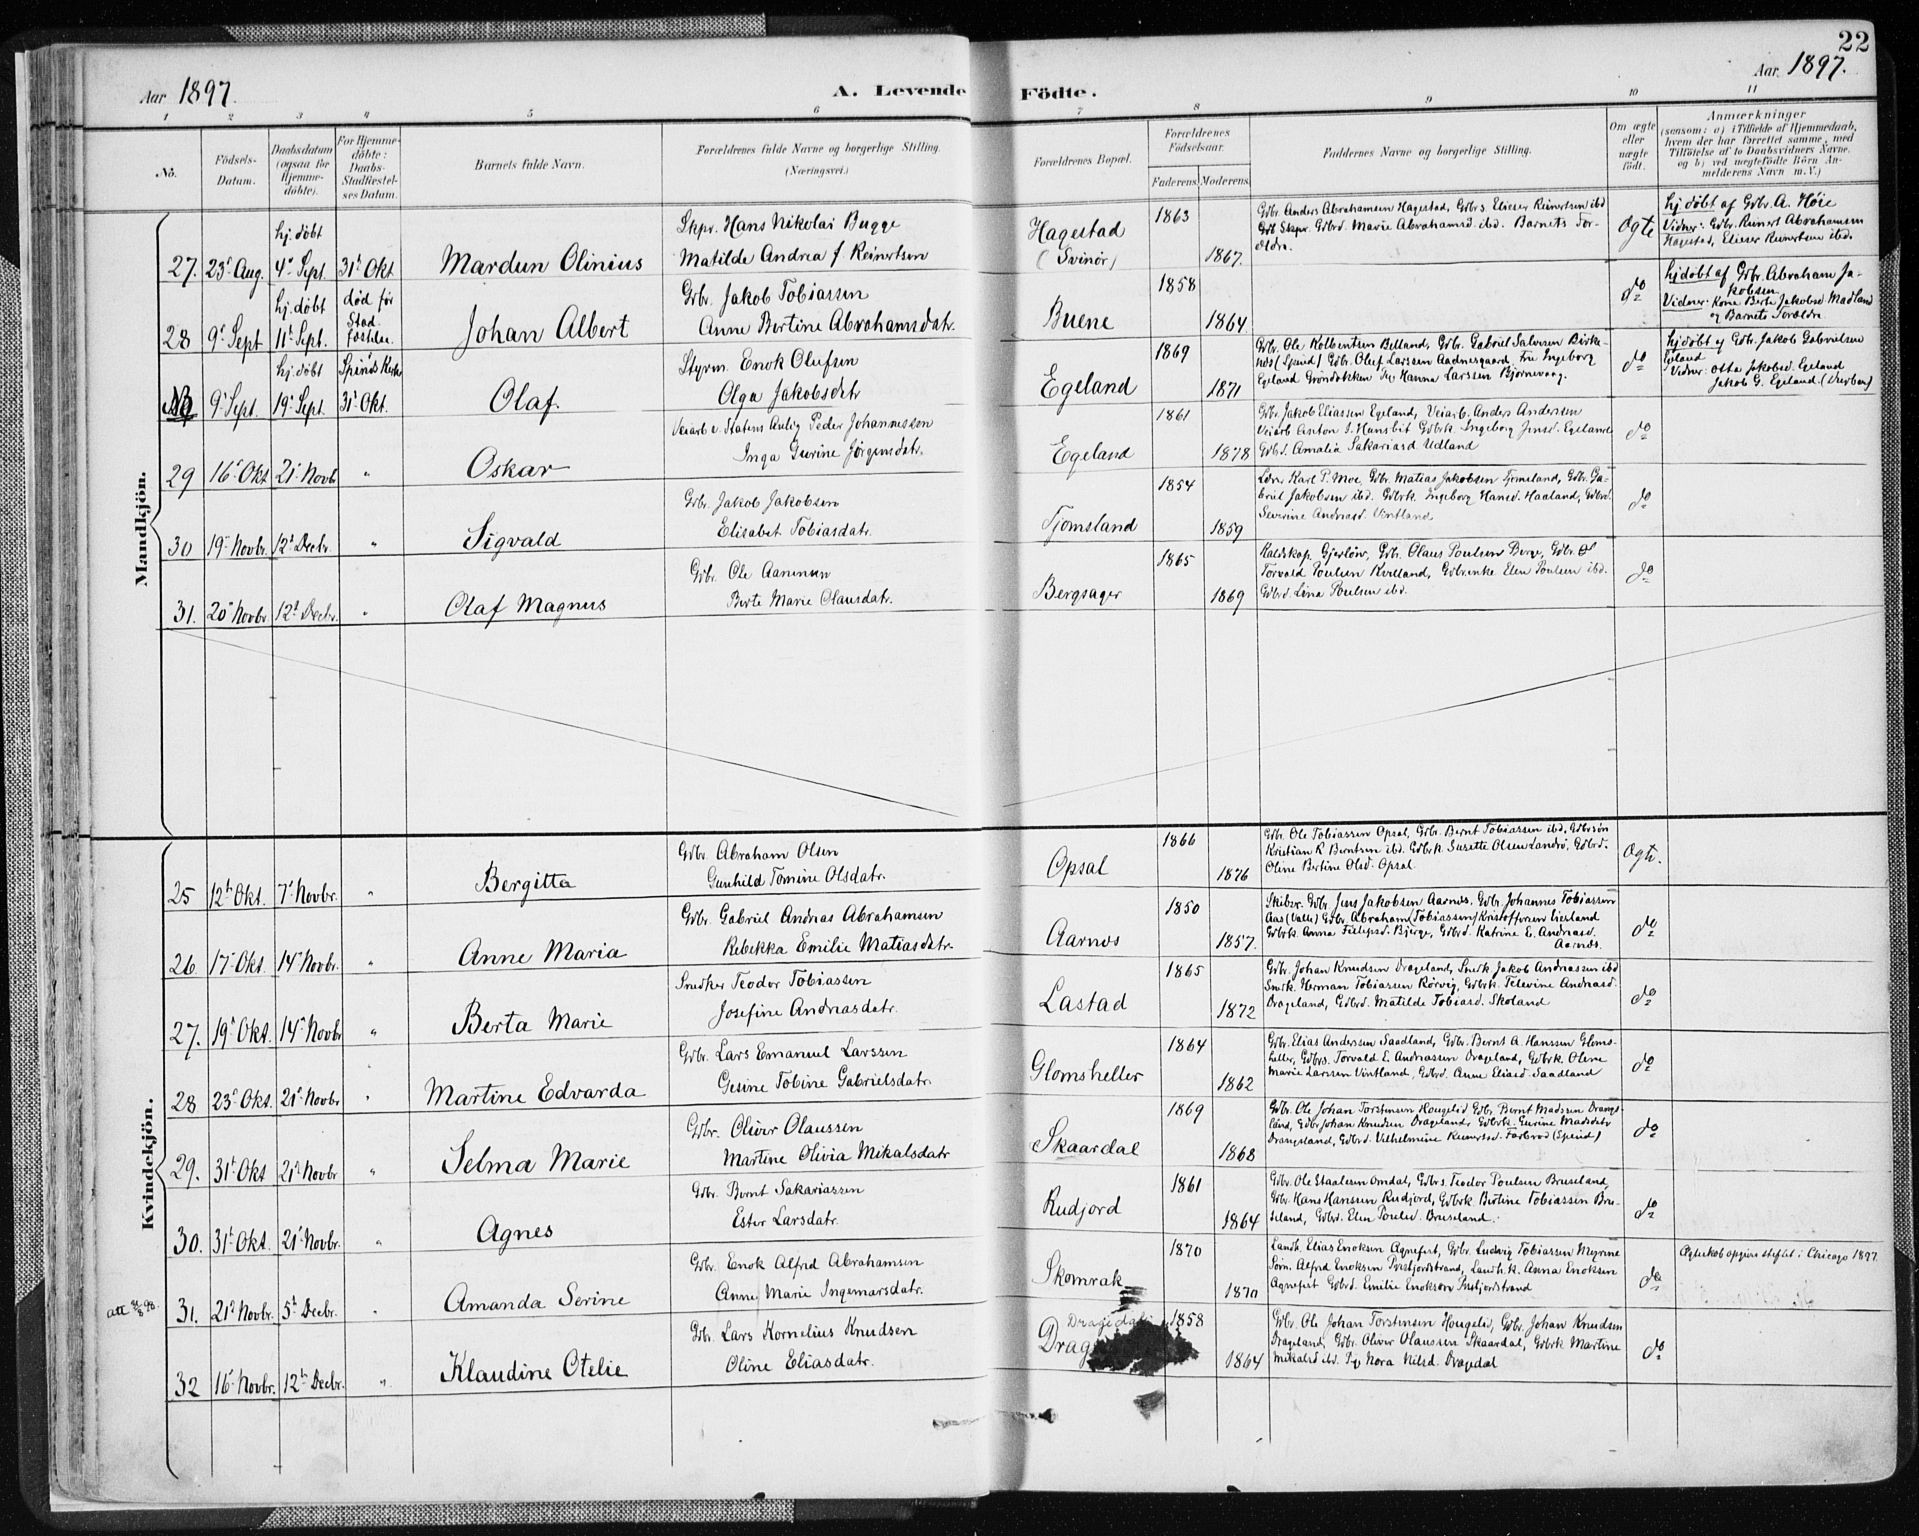 22
Aar 1897.
A. Levende Födte.
Aar 1897.
1 2 3 4 5 6 7 8 9 10 11
No.
Födsels-Datum.
Daabsdatum (ogsaa for Hjemme-döbte).
For Hjemme-döbte: Daabs-Stadfæstel-ses Datum.
Barnets fulde Navn.
Forældrenes fulde Navne og borgerlige Stilling.
(Næringsvei.)
Forældrenes Bopæl.
Forældrenes Födselsaar.
Faderens. Moderens.
Faddernes Navne og borgerlige Stilling.
Om ægte eller uægte födt.
Anmærkninger
(saasom: a) i Tilfælde af Hjemmedaab,
hvem der har forrettet samme, med
Tilföielse af to Daabsvidners Navne,
og b) ved uægtefödte Börn An-
melderens Navn m. V.)
Mandkjön.
27. 23' Aug. hj. døbt 4' Sept. 31' Okt Mardun Olinius
Skpr. Hans Nikolai Bugge
Matilde Andrea f. Reinertsen
Hagestad (Svinør) 1863 1867.
Gdbr. Anders Abrahamsen Hagestad, Gdbrs. Elieser Reinertsen ibd
Skpr. Gdbrd. Marie Abrahamsd. ibd. Barnets For-
ældre.
Ægte
hj. døbt af Gdbr. A. Høie
Vidner: Gdbr. Reinert Abrahamsen
Hagestad, Elieser Reinertsen ibd.
28 9' Sept hj. døbt 11' Sept. død før Stad-fæstelse. Johan Albert
Gdbr. Jakob Tobiassen
Anne Bertine Abrahamsdatr.
Buene 1858 1864
do
hjdøbt af Gdbr. Abraham Ja-
kobsen
Vidner: Kone Berte Jakobsd Madland
og Barnets Forældre.
9' Sept. hj. døbt 19' Sept. Spinds Kirke 31' Okt. Olaf.
Styrm. Enok Olufsen
Olga Jakobsdtr
Egeland 1869 1871
Gdbr. Ole Kolbentsen Belland, Gdbr. Gabriel Salvesen Birke-
(Spind) Gdbr. Oluf Larssen Aadnesgaard, Fru Ingeborg
Egeland Grøndokken Pig Hanna Larssen Bjørnevaag.
do
hjdøbt af Gdbr. Jakob Gabrielsen
Egeland
Vidner: Otta Jakobsd. Egeland
Jakob G. Egeland
29 16' Okt 21' Novb " Oskar
Veiarb v. Statens Anlæg Peder Johannessen
Inga Gurine Jørgensdatr.
Egeland 1861 1878
Gdbr. Jakob Eliassen Egeland, Veiarb. Anders Andersen
Veiarb Anton J. Hansbit Gdbrk. Ingeborg Jensd. Egeland
Gdbrd. Amalia Sakariasd Udland
do
30 19' Novbr. 12' Decbr. " Sigvald
Gdbr. Jakob Jakobsen
Elisabet Tobiasdatr.
Tjomsland 1854 1859
Lærer Karl P. Moe, Gdbr. Matias Jakobsen Tjomsland, Gdbr. Ga-
briel Jakobsen ibd. Gdbrk. Ingeborg Hansd. Haaland, Gdbrd.
Severine Andreasd. Vintland
do
31. 20' Novbr. 12' Decbr. " Olaf Magnus
Gdbr. Ole Aanensen
Berte Marie Olausdatr.
Bergsager 1865 1869
Kaldskap. Gjerløw, Gdbr. Olaus Poulsen Berge, Gdbr.
Torvald Poulsen Kvilland, Gdbrenke Elen Poulsen ibd.
Gdbrd. Lina Poulsen ibd.
do
Kvindekjön.
25 12' Okt. 7' Novbr. " Bergitta
Gdbr. Abraham Olsen
Gunhild Tomine Olsdatr.
Opsal 1866 1876
Gdbr. Ole Tobiassen Opsal, Gdbr. Bernt Tobiassen ibd. Gdbrsøn
Kristian R. Berntsen ibd. Gdbrk. Susette Olsen Landrø, Gdbrd.
Oline Bertine Olsd. Opsal
Ægte.
26 17' Okt. 14' Novbr. " Anne Maria
Gdbr. Gabriel Andreas Abrahamsen
Rebekka Emilie Matiasdatr.
Aarnes 1850 1857.
Skibsr. Gdbr Jens Jakobsen Aarnes, Gdbr. Johannes Tobiassen
Aas (Valle) Gdbr. Abraham (Tobiassen) Kristoffersen Eierland
Gdbrk. Anna Filipsd. Bjerge, Gdbrd. Katrine E. Andreasd.
Aarnes.
do
27. 19' Okt. 14' Novbr " Berta Marie
Snedker Teodor Tobiassen
Josefine Andreasdatr.
Lastad 1865 1872
Gdbr. Johan Knudsen Drageland, Snedk. Jakob Andreassen ibd
Snedk. Herman Tobiassen Rørvig, Gdbrk. Televine Andreasd.
Drageland, Gdbrd. Matilde Tobiasd. Skoland
do
28 23' Okt. 21' Novbr " Martine Edvarda
Gdbr. Lars Emanuel Larssen
Gesine Tobine Gabrielsdatr.
Glomsheller 1864 1862
Gdbr. Elias Andersen Saadland, Gdbr. Bernt A. Hanssen Gloms-
heller, Gdbrs. Torvald E. Andreassen Drageland, Gdbrk. Oline
Marie Larssen Vintland, Gdbrd. Anne Eliasd. Saadland
do
29. 31' Okt 21' Novbr " Selma Marie
Gdbr. Oliver Olaussen
Martine Olivia Mikalsdatr
Skaardal 1869 1868
Gdbr. Ole Johan Torstensen Hougelid Gdbr. Bernt Madssen Drangs-
land, Gdbr Johan Knudsen Drageland, Gdbrk. Gurine Madsdatr
Drangsland, Gdbrd. Vilhelmine Reinertsd. Farbrød (Spind)
do
30. 31' Okt. 21' Novbr. " Agnes
Gdbr. Bernt Sakariassen
Ester Larsdatr.
Rudjord 1861 1864
Gdbr. Ole Staalesen Omdal, Gdbrs. Teodor Poulsen Bruseland,
Gdbr. Hans Hanssen Rudjord, Gdbrk Bertine Tobiassen Bru-
seland, Gdbrd. Elen Poulsd. Bruseland.
do
31. 21' Novbr. 5' Decbr. " Amanda Serine
Gdbr. Enok Alfred Abrahamsen
Anne Marie Ingemarsdatr.
Skomrak 1870 1870
Landh. Elias Enoksen Agnefest, Gdbr. Ludvig Tobiassen Meyrine
Søm. Alfred Enoksen Rosfjordstrand, Landh.k. Anna Enoksen
Agnefest Gdbrd. Emilie Enoksen Rosfjordstrand
do
Ægteskab opgives stiftet i Chicago 1897.
32 16' Novbr. 12' Decbr. " Klaudine Otelie
Gdbr. Lars Kornelius Knudsen
Oline Eliasdatr.
Dragedal 1858 1864
Gdbr. Ole Johan Torstensen Hougelid, Gdbr. Johan Knudsen
Drageland, Gdbr. Oliver Olaussen Skaardal, Gdbrk Martine
Mikalsd ibd. Pig Nora Nilsd. Dragedal
do